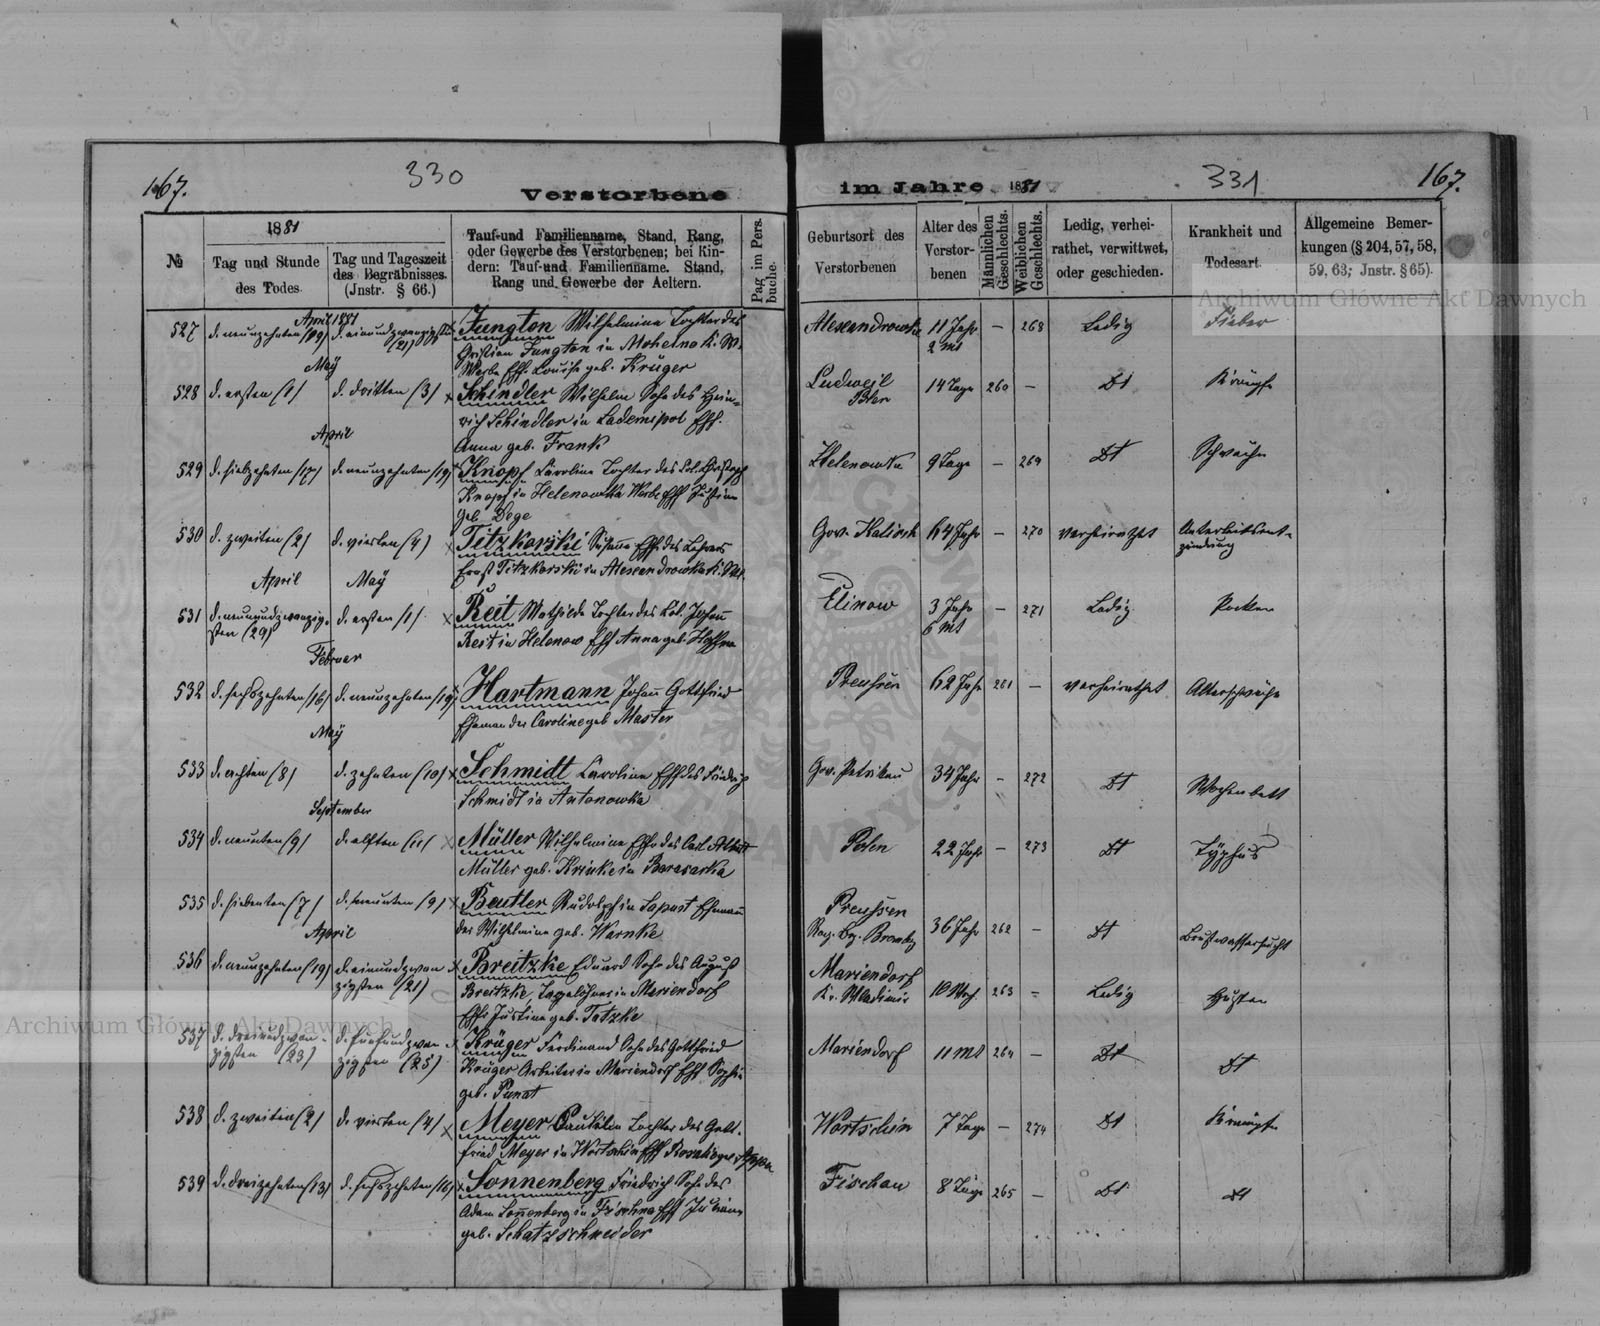 167.
330
Verstorbene
1881
№
Tag und Stunde
des Todes.
Tag und Tageszeit
des Begräbnisses.
(Jnstr. § 66.)
Tauf-und Familienname, Stand, Rang,
oder Gewerbe des Verstorbenen; bei Kin-
dern: Tauf-und Familienname. Stand,
Rang und Gewerbe der Aeltern.
Pag im Pers.
buche.
April 1881
527 d. neunzehnten (19) d. einundzwanzigsten (21) Jungton Wilhelmine Tochter des
Christian Jungton in
Werbe Ehf. Louise geb. Krüger
May
528 d. ersten (1) d. dritten (3) x Schindler Wilhelm Sohn des Hein-
rich Schindler in Ladomipol Ehf.
Anna geb. Frank
April
529 d. siebzehnten (17) d. neunzehnten (19) x Knopf Caroline Tochter des
Knopf in Helenowka Werbe Ehf Justine
geb. Dege
530 d. zweiten (2) d. vierten (4) x Titzkorski Ehf. des Lehrers
Ernst Titzkorski in Alexandrowka
April May
531 d. neunundzwanzig-
sten (29) d. ersten (1) x Reit Mathilde Tochter des Johann
Reit in Helenow Ehf Anna geb.
Februar
532 d. sechszehnten (16) d. neunzehnten (19) x Hartmann Johann Gottfried
Eheman der Caroline geb Master
May
533 d. achten (8) d. zehnten (10) x Schmidt Caroline Ehf des Friedrich
Schmidt in Antonowka
September
534 d. neunten (9) d. elften (11) x Müller Wilhelmine Ehf. des Carl
Müller geb. Krinke in
535 d. siebenten (7) d. neunten (9) x Beutler Rudolph in Ehemann
der Wilhelmine geb. Warnke
April
536 d. neunzehnten (19) d. einundzwan-
zigsten (21) x Breitzke Eduard Sohn des August
Breitzke, Tagelöhner in Mariendorf
Ehf. Justine geb. Tatzke
537 d. dreiundzwan-
zigsten (23) d. fünfundzwan-
zigsten (25) x Krüger Ferdinand Sohn des Gottfried
Krüger Arbeiter in Mariendorf Ehf Sophie
geb.
538 d. zweiten (2) d. vierten (4) x Meyer Pauline Tochter des Gott-
fried Meyer in Wortschin Ehf
539 d. dreizehnten (13) d. sechszehnten (16) x Sonnenberg Friedrich Sohn des
Adam Sonnenberg in Ehf Juliane
geb. Schatzschneider
im Jahre 1881
331
167.
Geburtsort des
Verstorbenen
Alter des
Verstor-
benen
Männlichen
Geschlechts.
Weiblichen
Geschlechts.
Ledig, verhei-
rathet, verwittwet,
oder geschieden.
Krankheit und
Todesart.
Allgemeine Bemer-
kungen (§ 204, 57, 58,
59, 63; Jnstr. § 65).
Alexandrowka 11 Jahr
2 Mt – 268 Ledig Fieber
Ludweil
Polen 14 Tage 260 – Dt Krämpfe
Helenowka 9 Tage – 269 Dt Schwäche
Gov. Kalisch 64 Jahr – 270 verheirathet Unterleibsent-
zündung
Elinow 3 Jahr
6 Mt – 271 Ledig Pocken
Preussen 62 Jahr 261 – verheirathet Altersschwäche
Gov. Petrikau 34 Jahr – 272 Dt Wochenbett
Polen 22 Jahr – 273 Dt Typhus
Preussen
Reg. Bz. Bromberg 36 Jahr 262 – Dt Brustwassersucht
Mariendorf
Kr. Wladimir 10 263 – Ledig Husten
Mariendorf 11 Mt 264 – Dt Dt
Wortschin 7 Tage – 274 Dt Krämpfe
Fischau 8 Tage 265 – Dt Dt
Archiwum Główne Akt Dawnych
Archiwum Główne Akt Dawnych